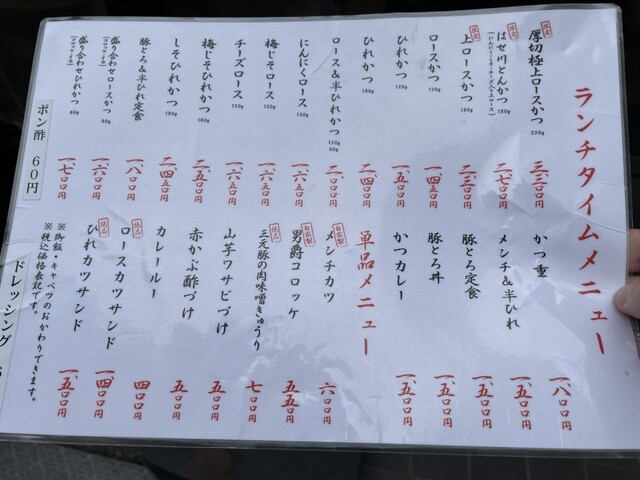 ランチタイムメニュー
限定 厚切極上ロースかつ 220g
限定 はせ川とんかつ 180g 二、七〇〇円
限定 上ロースかつ 180g 二、三〇〇円
ロースかつ 120g 一、四五〇円
ひれかつ 120g 一、五〇〇円
ひれかつ 180g 二、四〇〇円
ロース&半ひれかつ 120g 60g 二、〇〇〇円
にんにくロース 120g 一、六五〇円
梅じそロース 120g 一、六五〇円
チーズロース 120g 一、六五〇円
梅しそひれかつ 180g 二、五〇〇円
しそひれかつ 180g 二、四五〇円
豚とろ&半ひれ定食 一、八〇〇円
盛り合わせロースかつ 一、六〇〇円
盛り合わせひれかつ 一、七〇〇円
かつ重 一、八〇〇円
メンチ&半ひれ 一、五〇〇円
豚とろ定食 一、五〇〇円
豚とろ丼 一、五〇〇円
かつカレー 一、五〇〇円
単品メニュー
自家製 メンチカツ 六〇〇円
自家製 男爵コロッケ 五五〇円
三元豚の肉味噌きゅうり 七〇〇円
山芋ワサビづけ 五〇〇円
赤かぶ酢づけ 五〇〇円
カレールー 四〇〇円
ロースカツサンド 一、四〇〇円
ひれカツサンド 一、五〇〇円
※御飯・キャベツのおかわりできます。
※税込価格表記です。
ポン酢 60円
ドレッシング